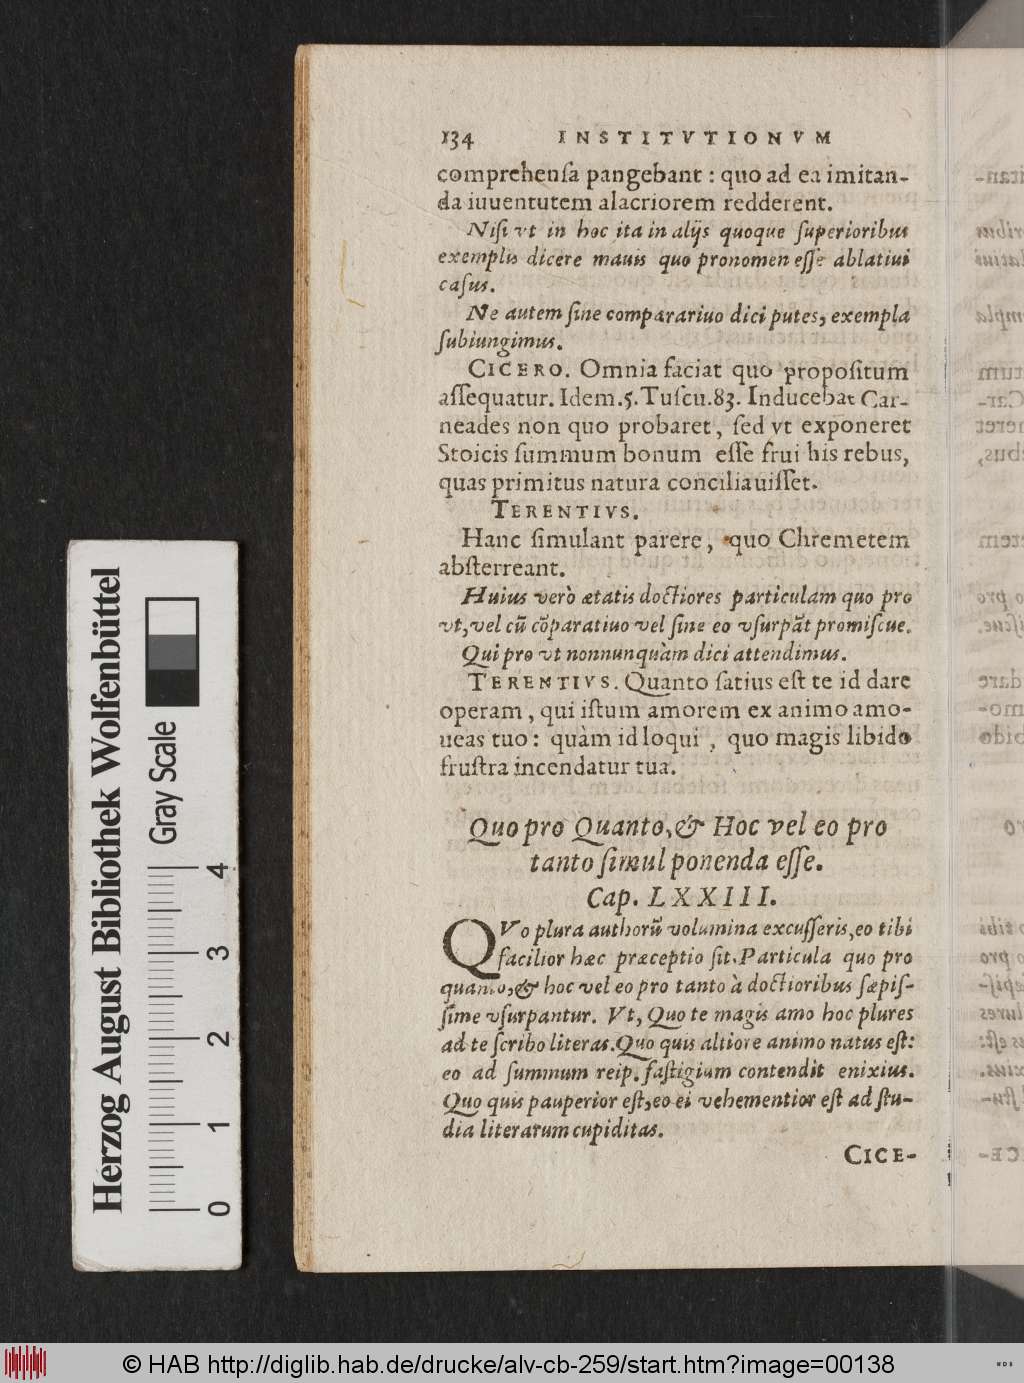 134 INSTITVTIONVM
comprehenſa pangebant : quo ad ea imitan-
da iuuentutem alacriorem redderent.
Niſi vt in hoc ita in alijs quoque ſuperioribus
exemplis dicere mauis quo pronomen eſſe ablatiui
caſus.
Ne autem ſine comparariuo dici putes, exempla
ſubiungimus.
CICERO. Omnia faciat quo propoſitum
aſſequatur. Idem.5.Tuſcu.83. Inducebat Car-
neades non quo probaret, ſed vt exponeret
Stoicis ſummum bonum eſſe frui his rebus,
quas primitus natura conciliauiſſet.
TERENTIVS.
Hanc ſimulant parere, quo Chremetem
abſterreant.
Huius verò ætatis doctiores particulam quo pro
vt, vel cũ cõparatiuo vel ſine eo vſurpãt promiſcue.
Qui pro vt nonnunquàm dici attendimus.
TERENTIVS. Quanto ſatius eſt te id dare
operam, qui iſtum amorem ex animo amo-
ueas tuo: quàm id loqui, quo magis libido
fruſtra incendatur tua.
Quo pro Quanto, & Hoc vel eo pro
tanto ſimul ponenda eſſe.
Cap. LXXIII.
QVo plura authorũ volumina excuſſeris, eo tibi
facilior hæc præceptio ſit. Particula quo pro
quanto, & hoc vel eo pro tanto à doctioribus ſæpiſ-
ſime vſurpantur. Vt, Quo te magis amo hoc plures
ad te ſcribo literas. Quo quis altiore animo natus eſt:
eo ad ſummum reip. faſtigium contendit enixius.
Quo quis pauperior eſt, eo ei vehementior eſt ad ſtu-
dia literarum cupiditas.
CICE-
Herzog August Bibliothek Wolfenbüttel
Gray Scale
0 1 2 3 4
© HAB http://diglib.hab.de/drucke/alv-cb-259/start.htm?image=00138